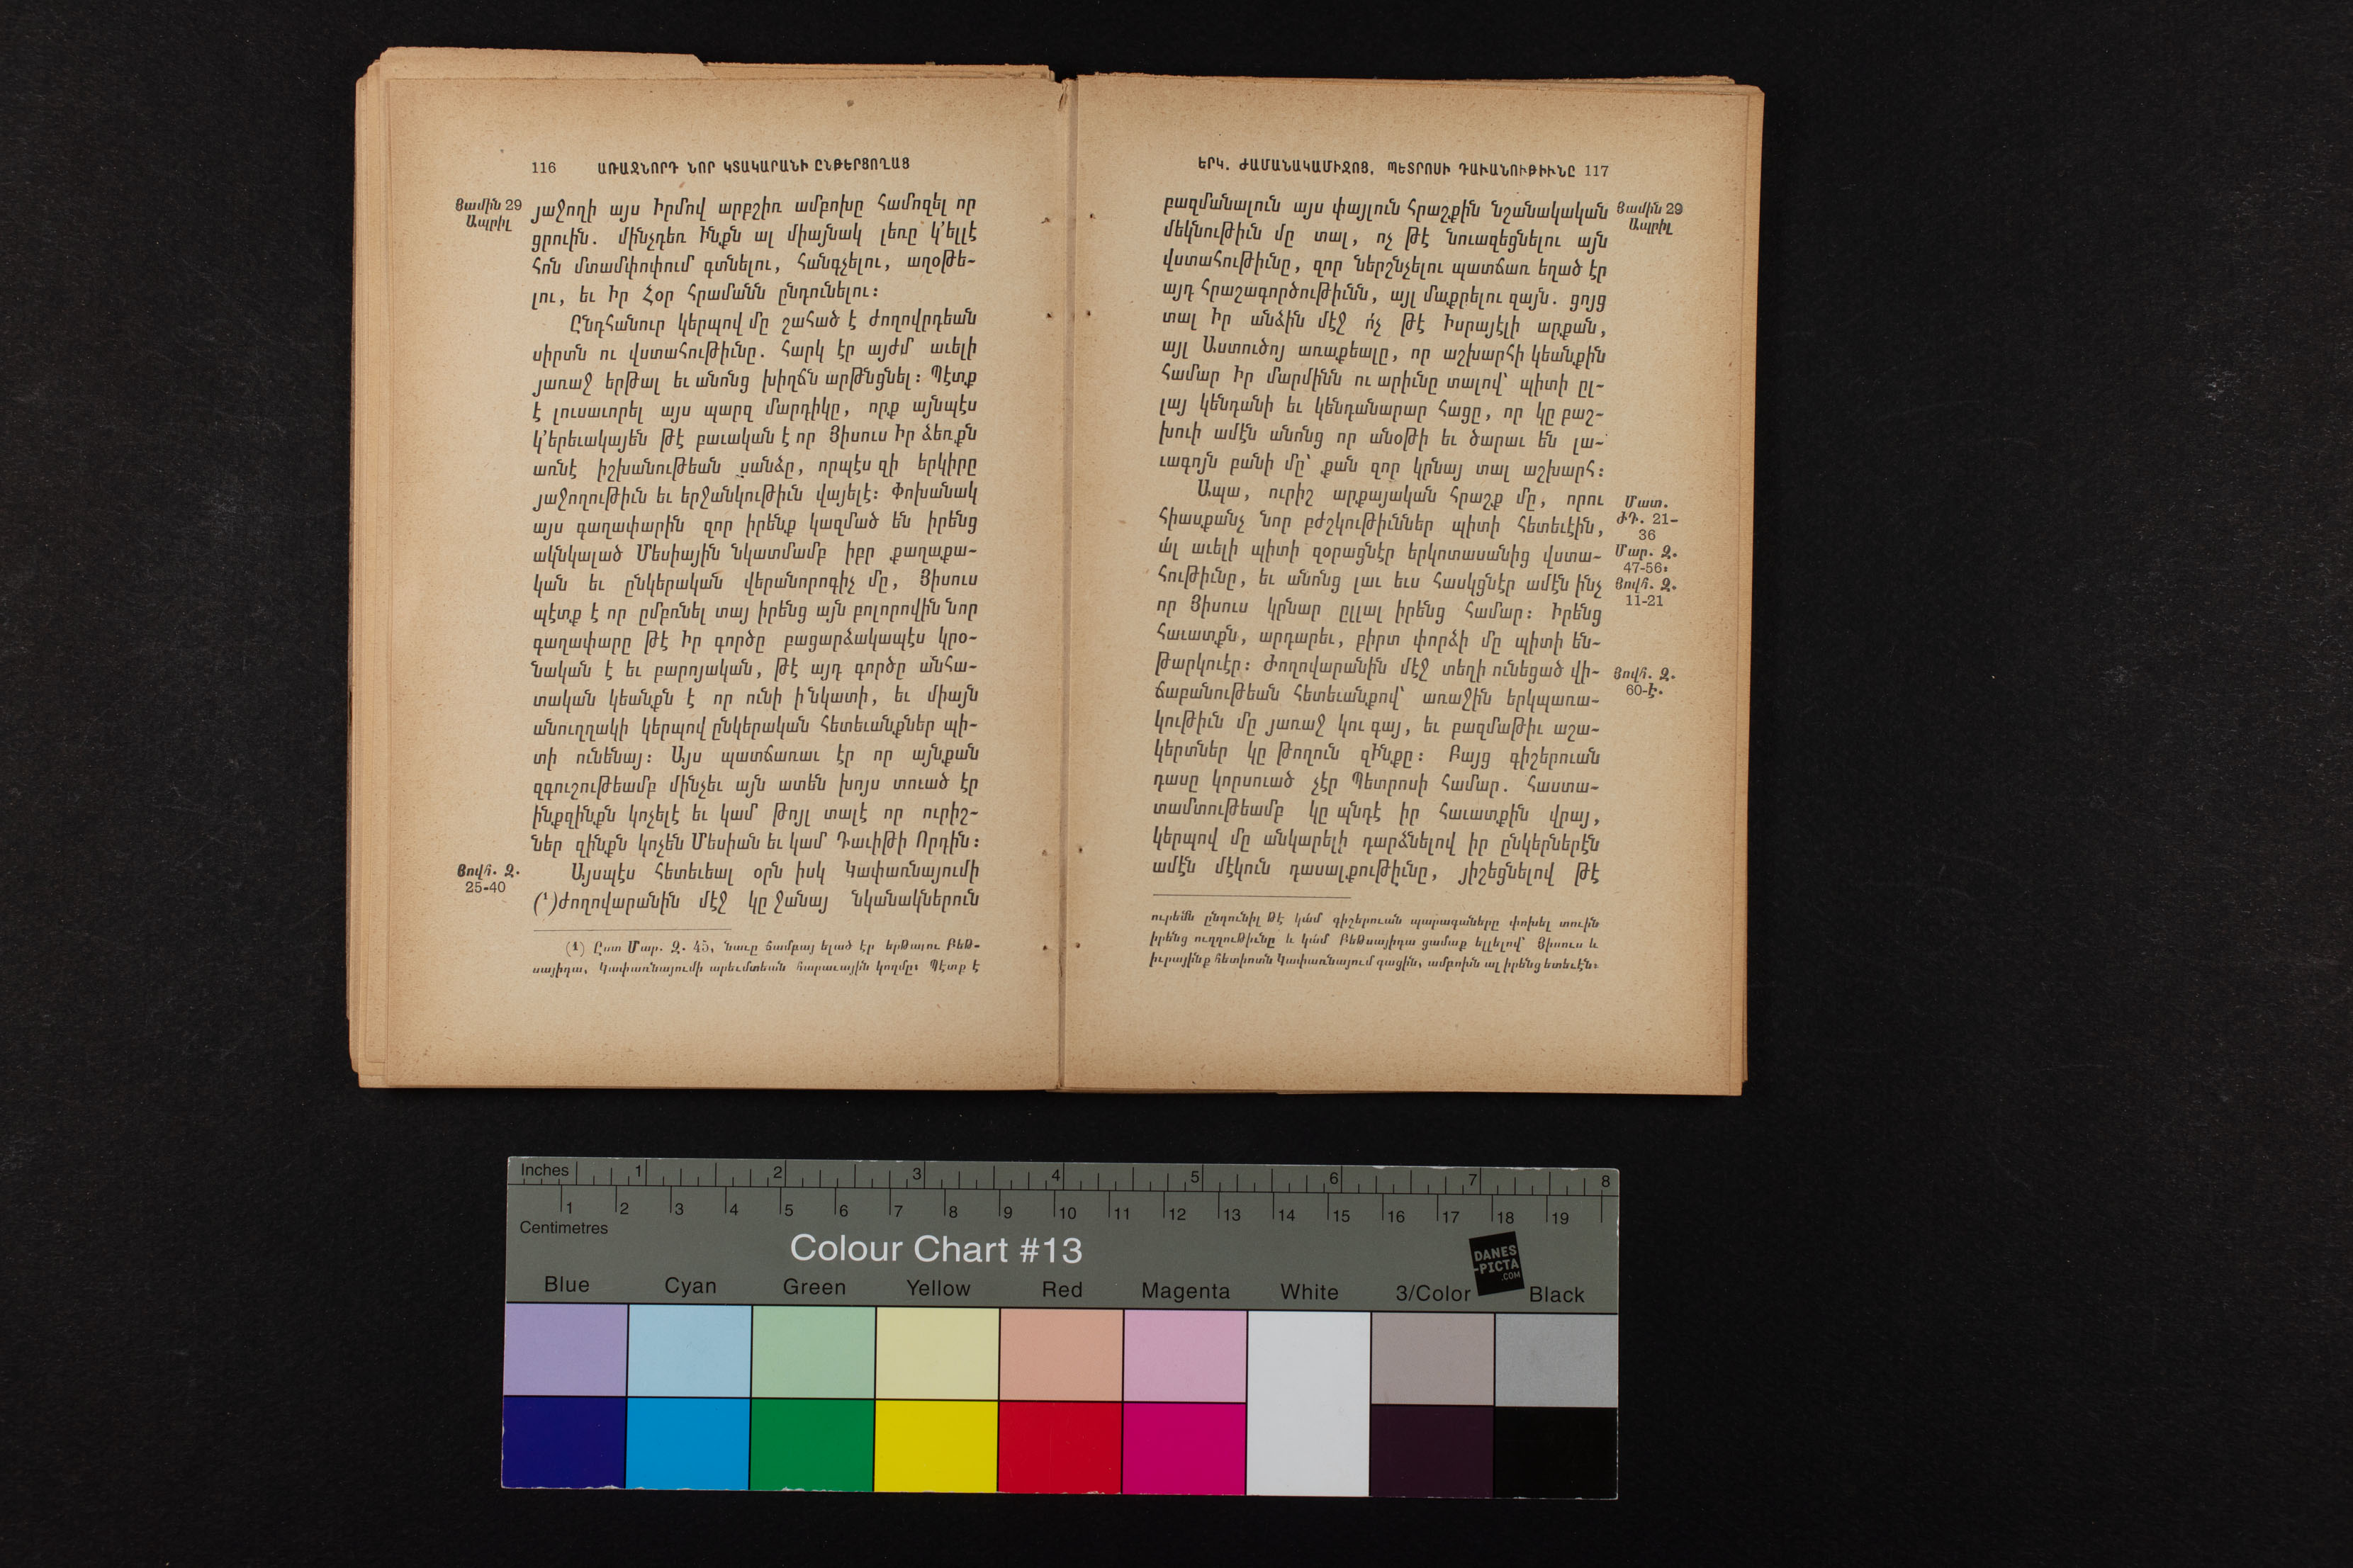 116 ԱՌԱՋՆՈՐԴ ՆՈՐ ԿՏԱԿԱՐԱՆԻ ԸՆԹԵՐՑՈՂԱՑ
Յամին 29
Ապրիլ
յաջողի այս Իրմով արբշիռ ամբոխը համոզել որ
ցրուին. մինչդեռ Ինքն ալ միայնակ լեռը կ'ելլէ
հոն մտամփոփում գտնելու, հանգչելու, աղօթե-
լու, եւ Իր Հօր հրամանն ընդունելու:
Ընդհանուր կերպով մը շահած է ժողովրդեան
սիրտն ու վստահութիւնը. հարկ էր այժմ աւելի
յառաջ երթալ եւ անոնց խիղճն արթնցնել: Պէտք
է լուսաւորել այս պարզ մարդիկը, որք այնպէս
կ'երեւակայեն թէ բաւական է որ Յիսուս Իր ձեռքն
առնէ իշխանութեան սանձը, որպէս զի երկիրը
յաջողութիւն եւ երջանկութիւն վայելէ: Փոխանակ
այս գաղափարին զոր իրենք կազմած են իրենց
ակնկալած Մեսիային նկատմամբ իբր քաղաքա-
կան եւ ընկերական վերանորոգիչ մը, Յիսուս
պէտք է որ ըմբռնել տայ իրենց այն բոլորովին նոր
գաղափարը թէ Իր գործը բացարձակապէս կրօ-
նական է եւ բարոյական, թէ այդ գործը անհա-
տական կեանքն է որ ունի ի նկատի, եւ միայն
անուղղակի կերպով ընկերական հետեւանքներ պի-
տի ունենայ: Այս պատճառաւ էր որ այնքան
զգուշութեամբ մինչեւ այն ատեն խոյս տուած էր
ինքզինքն կոչելէ եւ կամ թոյլ տալէ որ ուրիշ-
ներ զինքն կոչեն Մեսիան եւ կամ Դաւիթի Որդին:
Յովհ. Զ.
25-40
Այսպէս հետեւեալ օրն իսկ Կափառնայումի
(¹)ժողովարանին մէջ կը ջանայ նկանակներուն
(1) Ըստ Մար. Զ. 45, նաւը ճամբայ ելած էր երթալու Բեթ-
սայիդա, Կափառնայումի արեւմտեան հարաւային կողմը: Պէտք է
ԵՐԿ. ԺԱՄԱՆԱԿԱՄԻՋՈՑ. ՊԵՏՐՈՍԻ ԴԱՒԱՆՈՒԹԻՒՆԸ 117
Յամին 29
Ապրիլ
բազմանալուն այս փայլուն հրաշքին նշանակական
մեկնութիւն մը տալ, ոչ թէ նուազեցնելու այն
վստահութիւնը, զոր ներշնչելու պատճառ եղած էր
այդ հրաշագործութիւնն, այլ մաքրելու զայն. ցոյց
տալ Իր անձին մէջ ո՛չ թէ Իսրայէլի արքան,
այլ Աստուծոյ առաքեալը, որ աշխարհի կեանքին
համար Իր մարմինն ու արիւնը տալով՝ պիտի ըլ-
լայ կենդանի եւ կենդանարար հացը, որ կը բաշ-
խուի ամէն անոնց որ անօթի եւ ծարաւ են լա-
ւագոյն բանի մը՝ քան զոր կրնայ տալ աշխարհ:
Ապա, ուրիշ արքայական հրաշք մը, որու
հիասքանչ նոր բժշկութիւններ պիտի հետեւէին,
ա՛լ աւելի պիտի զօրացնէր երկոտասանից վստա-
հութիւնը, եւ անոնց լաւ եւս հասկցնէր ամէն ինչ
որ Յիսուս կրնար ըլլալ իրենց համար: Իրենց
հաւատքն, արդարեւ, բիրտ փորձի մը պիտի են-
թարկուէր: Ժողովարանին մէջ տեղի ունեցած վի-
ճաբանութեան հետեւանքով՝ առաջին երկպառա-
կութիւն մը յառաջ կու գայ, եւ բազմաթիւ աշա-
կերտներ կը թողուն զԻնքը: Բայց գիշերուան
դասը կորսուած չէր Պետրոսի համար. հաստա-
տամտութեամբ կը պնդէ իր հաւատքին վրայ,
կերպով մը անկարելի դարձնելով իր ընկերներէն
ամէն մէկուն դասալքութիւնը, յիշեցնելով թէ
Մատ.
ԺԴ. 21-
36
Մար. Զ.
47-56:
Յովհ. Զ.
11-21
Յովհ. Զ.
60-Է.
ուրեմն ընդունիլ թէ կամ գիշերուան պարագաները փոխել տուին
իրենց ուղղութիւնը և կամ Բեթսայիդա ցամաք ելլելով՝ Յիսուս և
իւրայինք հետիոտն Կափառնայում գացին, ամբոխն ալ իրենց ետեւէն:
Inches 1 2 3 4 5 6 7 8
1 2 3 4 5 6 7 8 9 10 11 12 13 14 15 16 17 18 19
Centimetres
Colour Chart #13
DANES
-PICTA
.COM
Blue Cyan Green Yellow Red Magenta White 3/Color Black